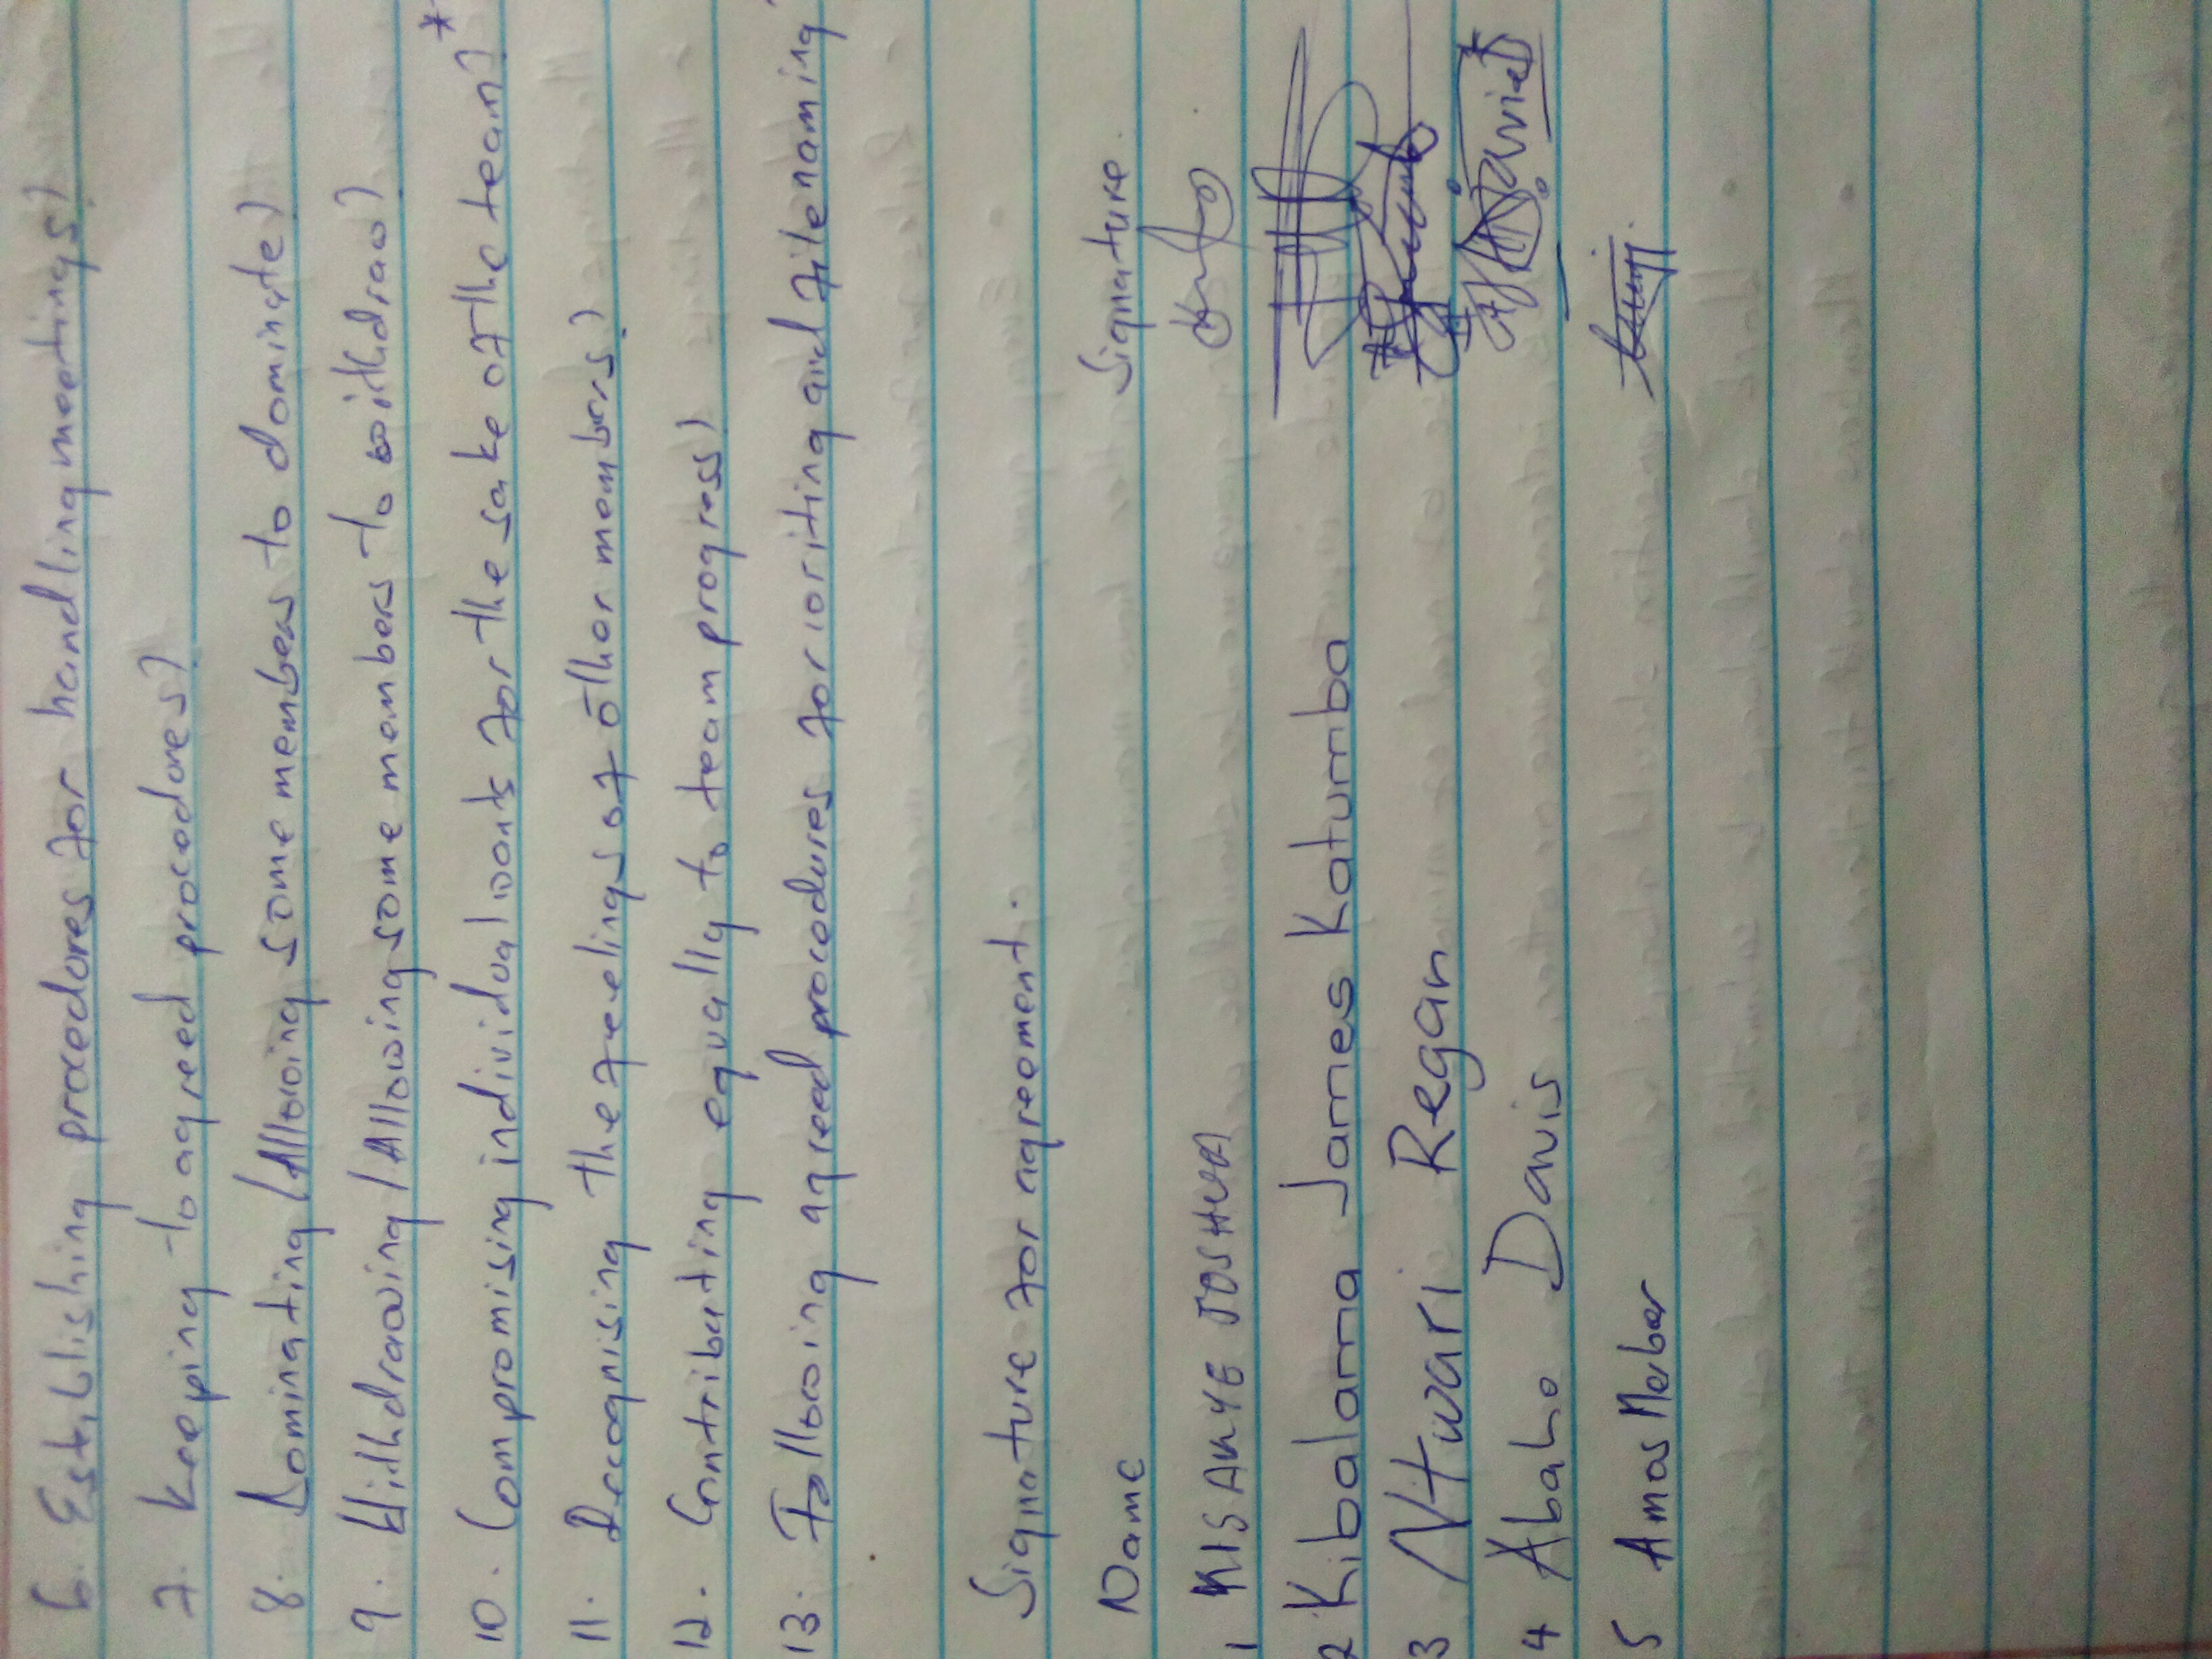 6. Establishing procedures for handling meetings?
7. Keeping to agreed procedures?
8. Dominating / Allowing some members to dominate?
9. Withdrawing / Allowing some members to withdraw?
10. Compromising individual wants for the sake of the team? *
11. Recognising the feelings of other members?
12. Contributing equally to team progress?
13. Following agreed procedures for writing and file naming
Signature for agreement.
Name Signature.
1 KISAKYE JOSHUA
2 Kibalama James Katumba
3 Ntwari Regan
4 Abaho Davis
5 Amos Merber